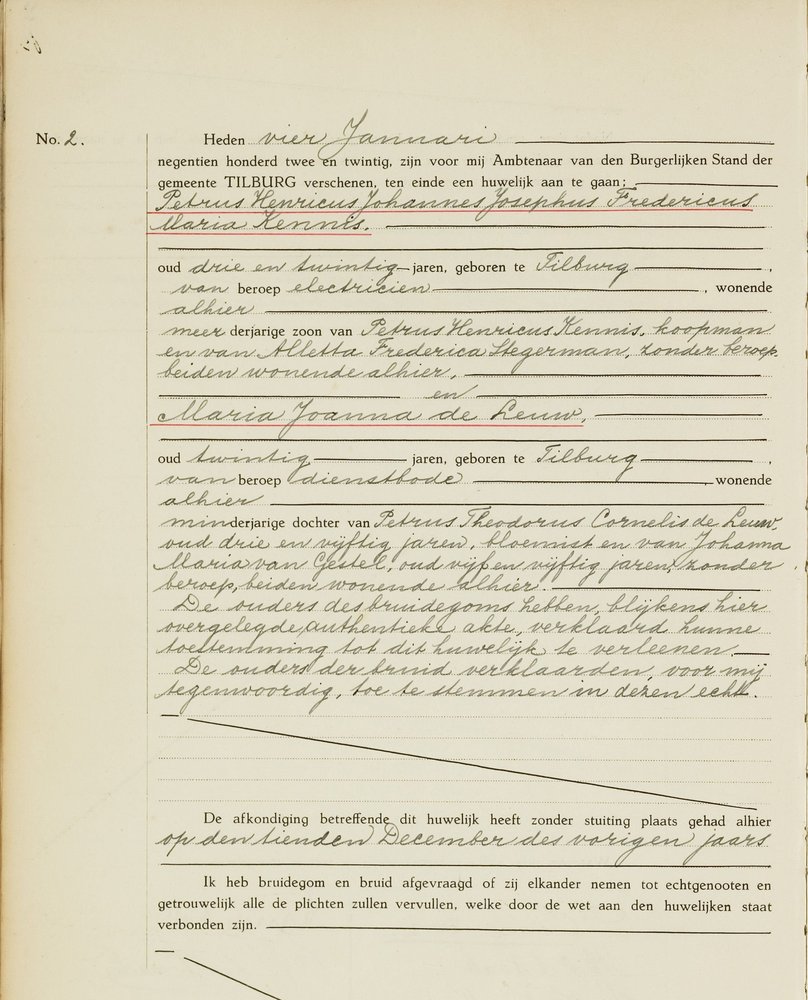 No. 2. Heden vier Januari
negentien honderd twee en twintig, zijn voor mij Ambtenaar van den Burgerlijken Stand der
gemeente TILBURG verschenen, ten einde een huwelijk aan te gaan:
Petrus Henricus Johannes Josephus Fredericus
Maria Kennis.
oud drie en twintig jaren, geboren te Tilburg,
van beroep electricien, wonende
alhier
meerderjarige zoon van Petrus Henricus Kennis, koopman
en van Alletta Frederica Stegerman, zonder beroep
beiden wonende alhier,
en
Maria Joanna de Leuw,
oud twintig jaren, geboren te Tilburg,
van beroep dienstbode, wonende
alhier
minderjarige dochter van Petrus Theodorus Cornelis de Leuw,
oud drie en vijftig jaren, bloemist en van Johanna
Maria van Gestel, oud vijf en vijftig jaren, zonder
beroep, beiden wonende alhier.
De ouders des bruidegoms hebben, blijkens hier
overgelegde authentieke akte, verklaard hunne
toestemming tot dit huwelijk te verleenen.
De ouders der bruid verklaarden, voor mij
tegenwoordig, toe te stemmen in dezen echt.
De afkondiging betreffende dit huwelijk heeft zonder stuiting plaats gehad alhier
op den tienden December des vorigen jaars
Ik heb bruidegom en bruid afgevraagd of zij elkander nemen tot echtgenooten en
getrouwelijk alle de plichten zullen vervullen, welke door de wet aan den huwelijken staat
verbonden zijn.